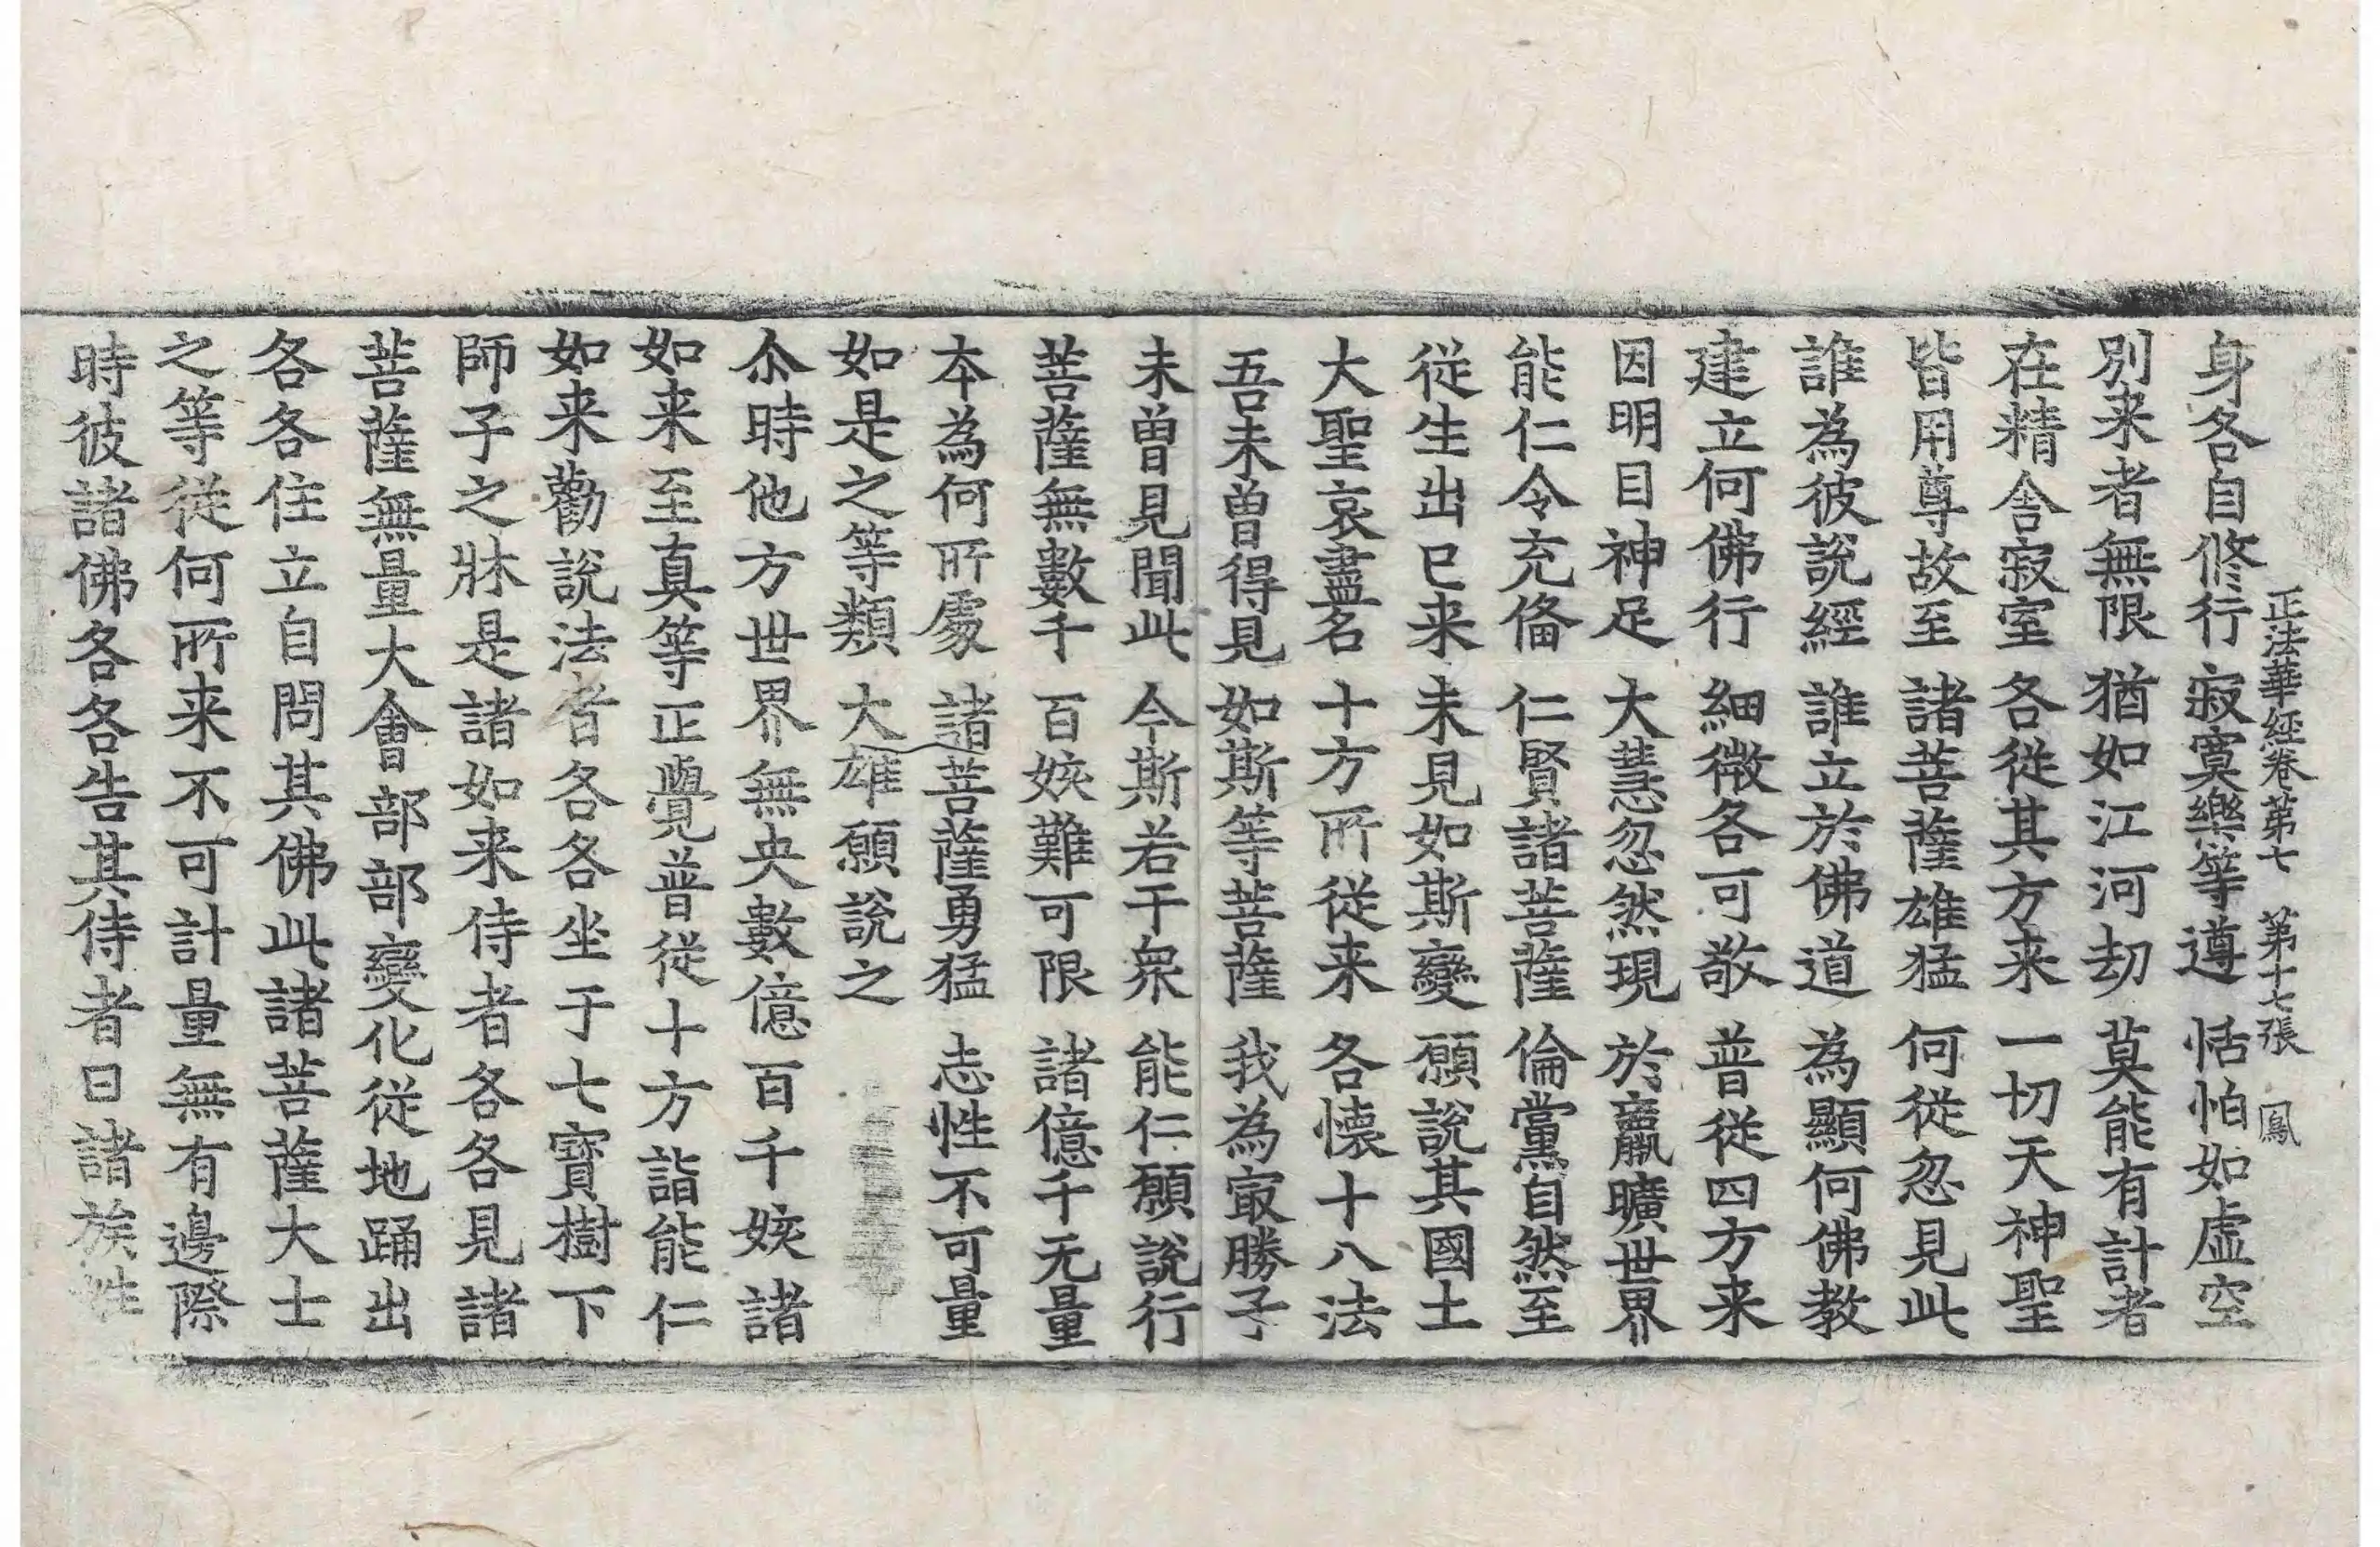 正法華經卷第七 第十七張 鳳
身各自修行 寂寞樂等遵 恬怕如虛空
別来者無限 猶如江河劫 莫能有計者
在精舍寂室 各從其方来 一切天神聖
皆用尊故至 諸菩薩雄猛 何從忽見此
誰為彼說經 誰立於佛道 為顯何佛教
建立何佛行 細微各可敬 普從四方来
因明目神足 大慧忽然現 於羸曠世界
能仁令充俻 仁賢諸菩薩 倫黨自然至
從生出已来 未見如斯變 願說其國土
大聖哀盡名 十方所從来 各懷十八法
吾未曾得見 如斯等菩薩 我為㝡勝子
未曾見聞此 今斯若干衆 能仁願說行
菩薩無數千 百姟難可限 諸億千无量
本為何所處 諸菩薩勇猛 志性不可量
如是之等類 大雄願說之
尒時他方世界無央數億百千姟諸
如来至真等正覺普從十方詣能仁
如来勸說法者各各坐于七寶樹下
師子之牀是諸如来侍者各各見諸
菩薩無量大會部部變化從地踊出
各各住立自問其佛此諸菩薩大士
之等從何所来不可計量無有邊際
時彼諸佛各各告其侍者曰諸族姓